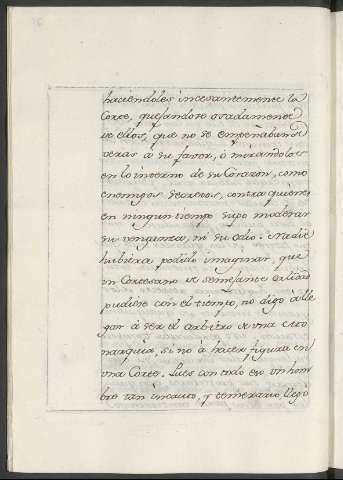 haciendoles incesantemente la
Corte, quejandose osadamente
de ellos, que no se empeñaban de
veras á su favor, ó mirandolos
en lo interno de su Corazon, como
enemigos secretos, contra quienes
en ningun tiempo supo moderar
su venganza, ni su odio. Nadie
hubiera podido imaginar, que
un Cortesano de semejante calidad
pudiese con el tiempo, no digo á lle
gar á ser el arbitro de una Mo
narquia, si no á hacer figura en
una Corte. Pues con todo eso un hom
bre tan incauto, y temerario, llegó